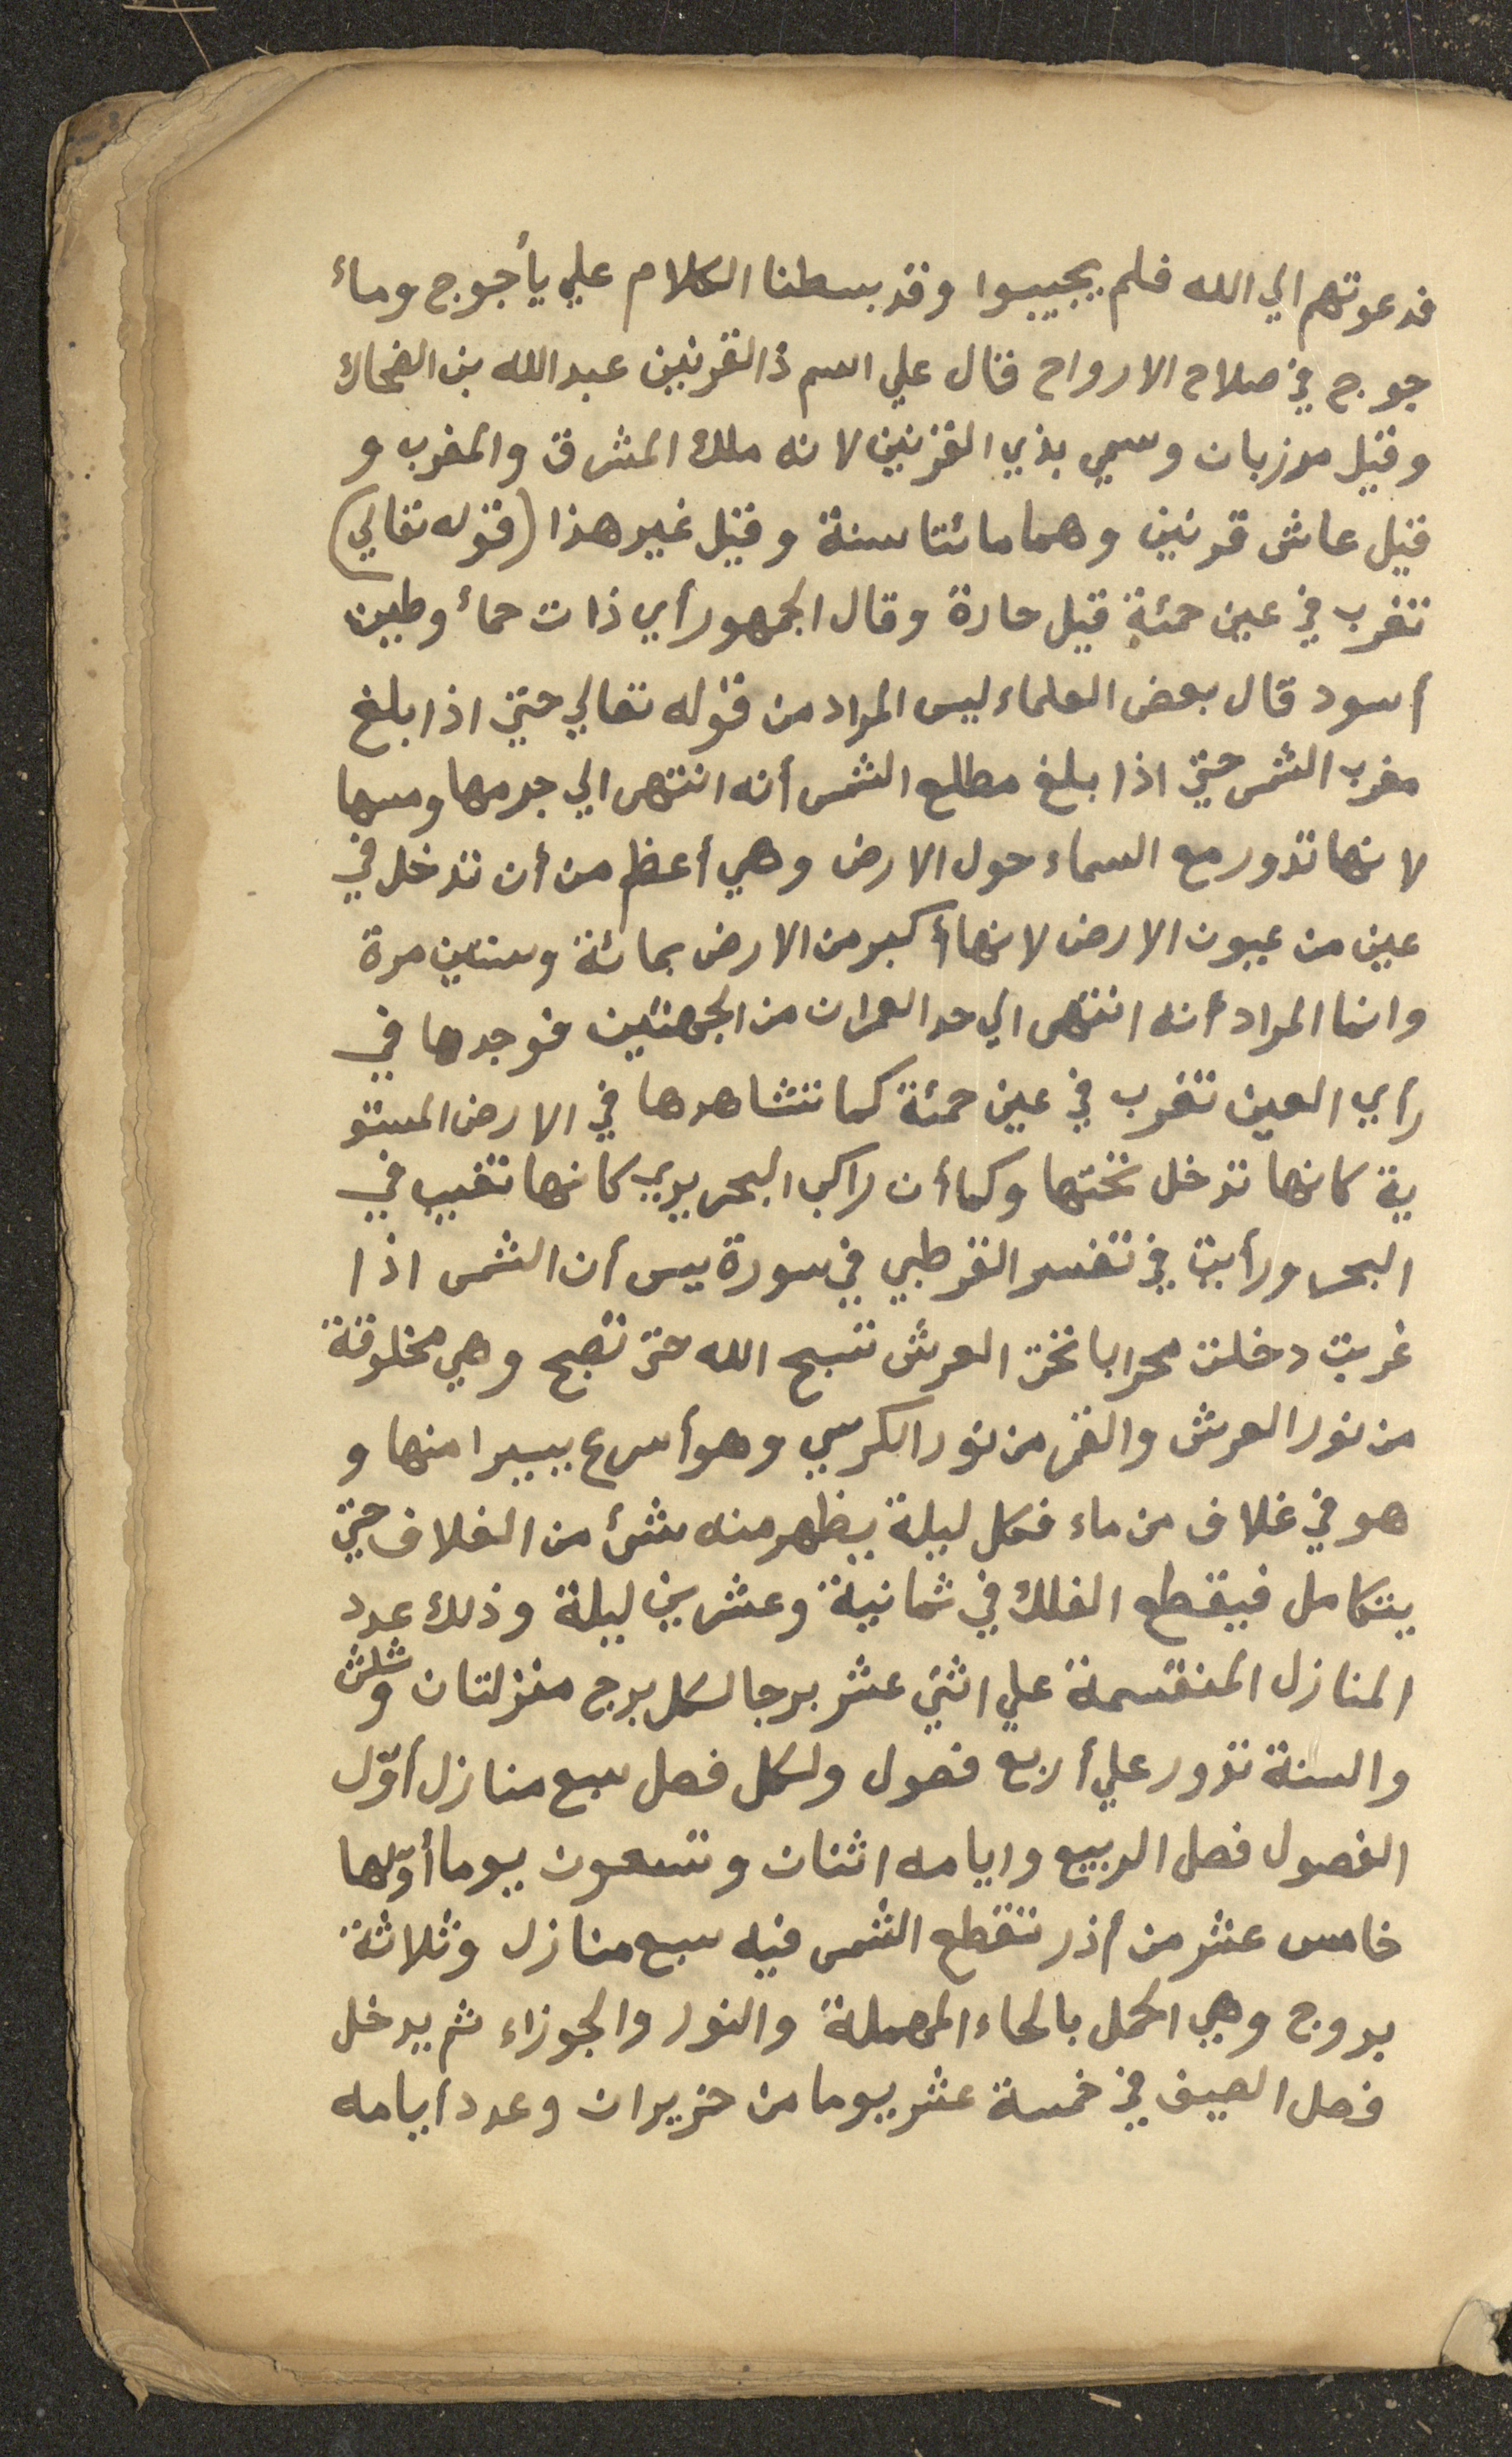 فدعوتهم الي الله فلم يجيبوا وقد بسطنا الكلام علي يأجوج ومأ
جوج في صلاح الارواح فقال علي اسم ذالقرنين عبد الله بن الضحاك
وقيل مرزبان وسمي بذي القرنين لانه ملك المشرق والمغرب و
قيل عاش قرنين وهما مائتا سنة وقيل غير هذا (قوله تعالي)
تغرب في عين حمئة قيل حارة وقال الجمهور أي ذات حمأ وطين
أسود قال بعض العلماء ليس المراد من قوله تعالي حتي اذا بلغ
مغرب الشمس حتي اذا بلغ مطلع الشمس أنه انتهى الي جرمها ومسها
لانها تدور مع السماء حول الارض وهي أعظم من أن تدخل في
عين من عيون الارض لانها أكبر من الارض بمائة وستين مرة
وانما المراد أنه انتهى الي حد العمران من الجهتين فوجدها في
رأي العين تغرب في عين حمئة كما نشاهدها في الارض المستو
ية كانها تدخل تحتها وكما أن راكب البحر يري كانها تغيب في
البحر ورأيت في تفسير القرطبي في سورة يس أن الشمس اذا
غربت دخلت محرابا تحت العرش تسبح الله حتى تصبح وهي مخلوقة
من نور العرش والقمر من نور الكرسي وهو أسرع سيرا منها و
هو في غلاف من ماء فكل ليلة يظهر منه شئ من الغلاف حتي
يتكامل فيقطع الفلك في ثمانية وعشرين ليلة وذلك عدد
المنازل المنقسمة علي اثني عشر برجا لكل برج منزلتان وثلث
والسنة تدور علي أربع فصول ولكل فصل سبع منازل أوّل
الفصول فصل الربيع وايامه اثنان وتسعون يوما أوّلها
خامس عشر من أذر تقطع الشمس فيه سبع منازل وثلاثة
بروج وهي الحمل بالحاء المهملة والثور والجوزاء ثم يدخل
فصل الصيف في خمسة عشر يوما من حزيران وعدد أيامه